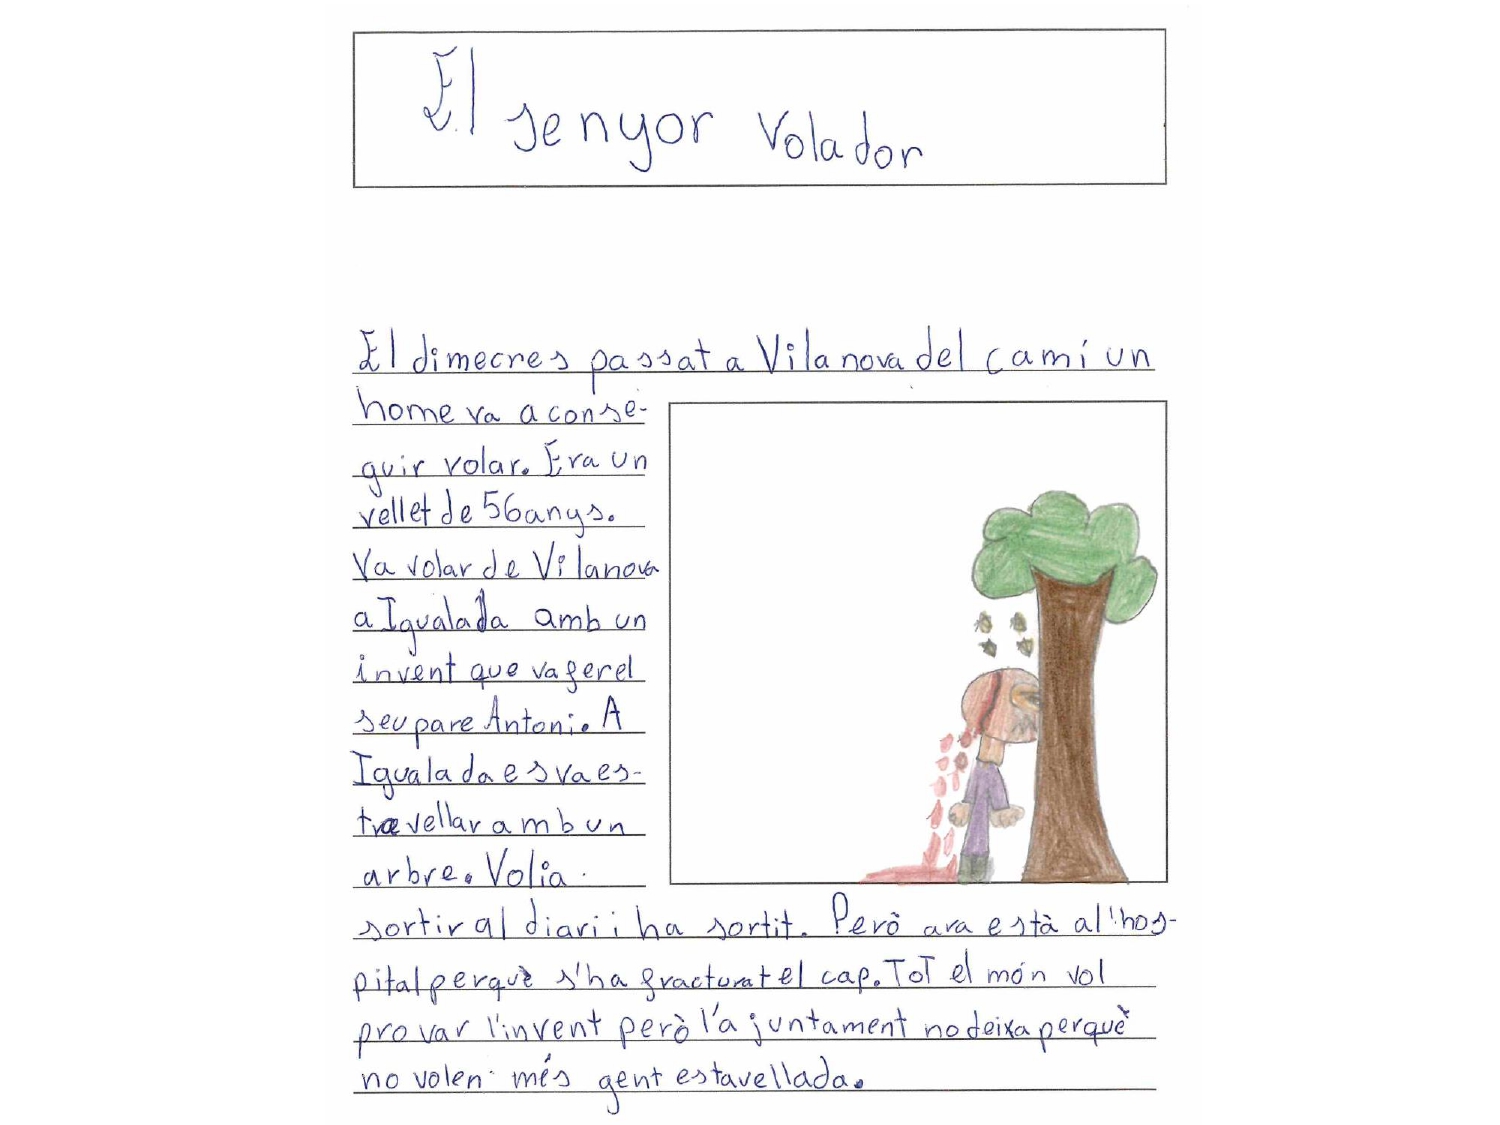 El senyor volador
El dimecres passat a Vilanova del camí un
home va aconse-
guir volar. Era un
vellet de 56 anys.
Va volar de Vilanova
a Igualada amb un
invent que va fer el
seu pare Antoni. A
Igualada es va es-
travellar amb un
arbre. Volia
sortir al diari i ha sortit. Però ara està a l'hos-
pital perquè s'ha fracturat el cap. ToT el món vol
provar l'invent però l'ajuntament no deixa perquè
no volen més gent estavellada.